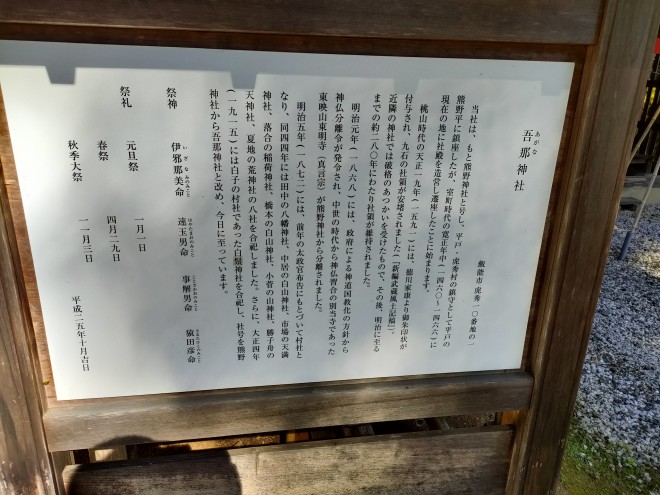 あがな
吾那神社
飯能市虎秀一〇番地の一
当社は、もと熊野神社と号し、平戸・虎秀村の鎮守として平戸の
熊野平に鎮座したが、室町時代の寛正年中(一四六〇~一四六六)に
現在の地に社殿を造営し遷座したことに始まります。
桃山時代の天正一九年(一五九一)には、徳川家康より御朱印状が
付与され、九石の社領が安堵されました(「新編武蔵風土記稿」)。
近隣の神社では破格のあつかいを受けたもので、その後、明治に至る
までの約二八〇年にわたり社領が維持されました。
明治元年(一八六八)には、政府による神道国教化の方針から
神仏分離令が発令され、中世の時代から神仏習合の別当寺であった
東映山東明寺(真言宗)が熊野神社から分離されました。
明治五年(一八七二)には、前年の太政官布告にもとづいて村社と
なり、同四四年には田中の八幡神社、中居の白山神社、市場の天満
神社、落合の稲荷神社、橋本の白山神社、小菅の山神社、勝子舟の
天神社、夏地の荒神社の八社を合祀しました。さらに、大正四年
(一九一五)には白子の村社であった白鬚神社を合祀し、社号を熊野
神社から吾那神社と改め、今日に至っています。
祭神 伊邪那美命 速玉男命 事解男命 猿田彦命
いざなみのみこと はやたまおのみこと ことさかおのみこと さるたひこのみこと
祭礼 元旦祭 一月一日
春祭 四月二九日
秋季大祭 一一月三日
平成二五年十月吉日